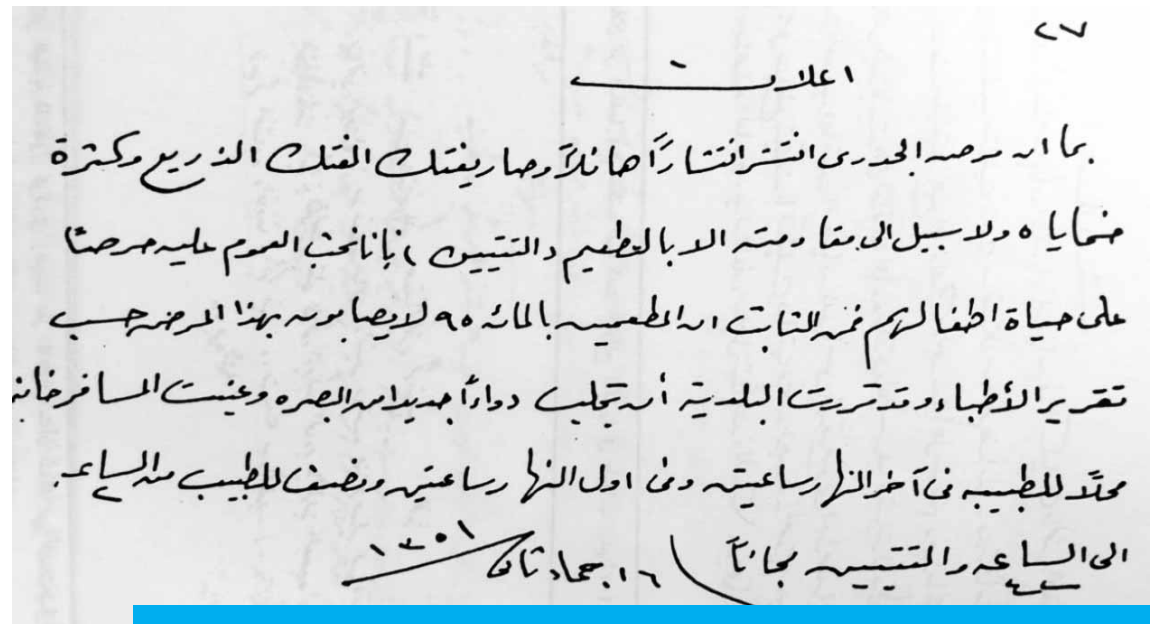 ٢٧
اعلان
بما ان مرض الجدرى انتشر انتشاراً هائلاً وصار يفتك الفتك الذريع وكثرة
ضحاياه ولا سبيل الى مقاومته الا بالتطعيم (التتيين) فإنا نحث العموم عليه حرصاً
على حياة اطفالهم فمن الثابت ان المطعمين بالمائه ٩٥ لا يصابون بهذا المرض حسب
تقرير الأطباء وقد قررت البلدية أن تجلب دواءاً جديدا من البصره وعينت المسافرخانه
محلاً للطبيب فى آخر النهار ساعتين وفى اول النهار ساعتين ونصف للطبيب من الساعه
الى الساعه والتتيين مجاناً ١٦ جماد ثانى ١٣٥١